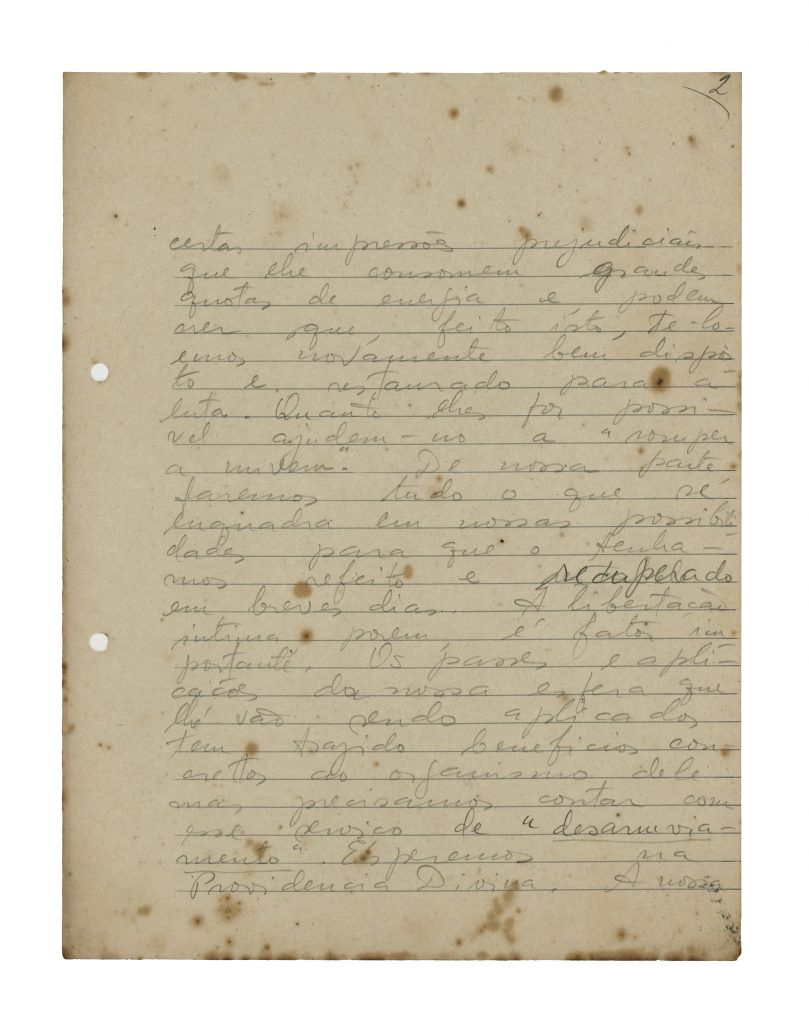 2
certas impressões prejudiciais
que lhe consomem grandes
quotas de energia e podem
crer que, feito isto, te-lo-
emos novamente bem dispos
to e restaurado para a
luta. Quanto lhes for possi-
vel ajudem-no a "romper
a nuvem". De nossa parte
faremos tudo o que se
enquadra em nossas possibili
dades para que o tenha-
mos refeito e recuperado
em breves dias. A libertação
intima porem, é fator im
portante. Os passes e apli-
cações da nossa esfera que
lhe vão sendo aplicados
tem trazido beneficios con-
cretos ao organismo dele
mas precisamos contar com
esse serviço de "desanuvia-
mento". Esperemos na
Providencia Divina. A nossa